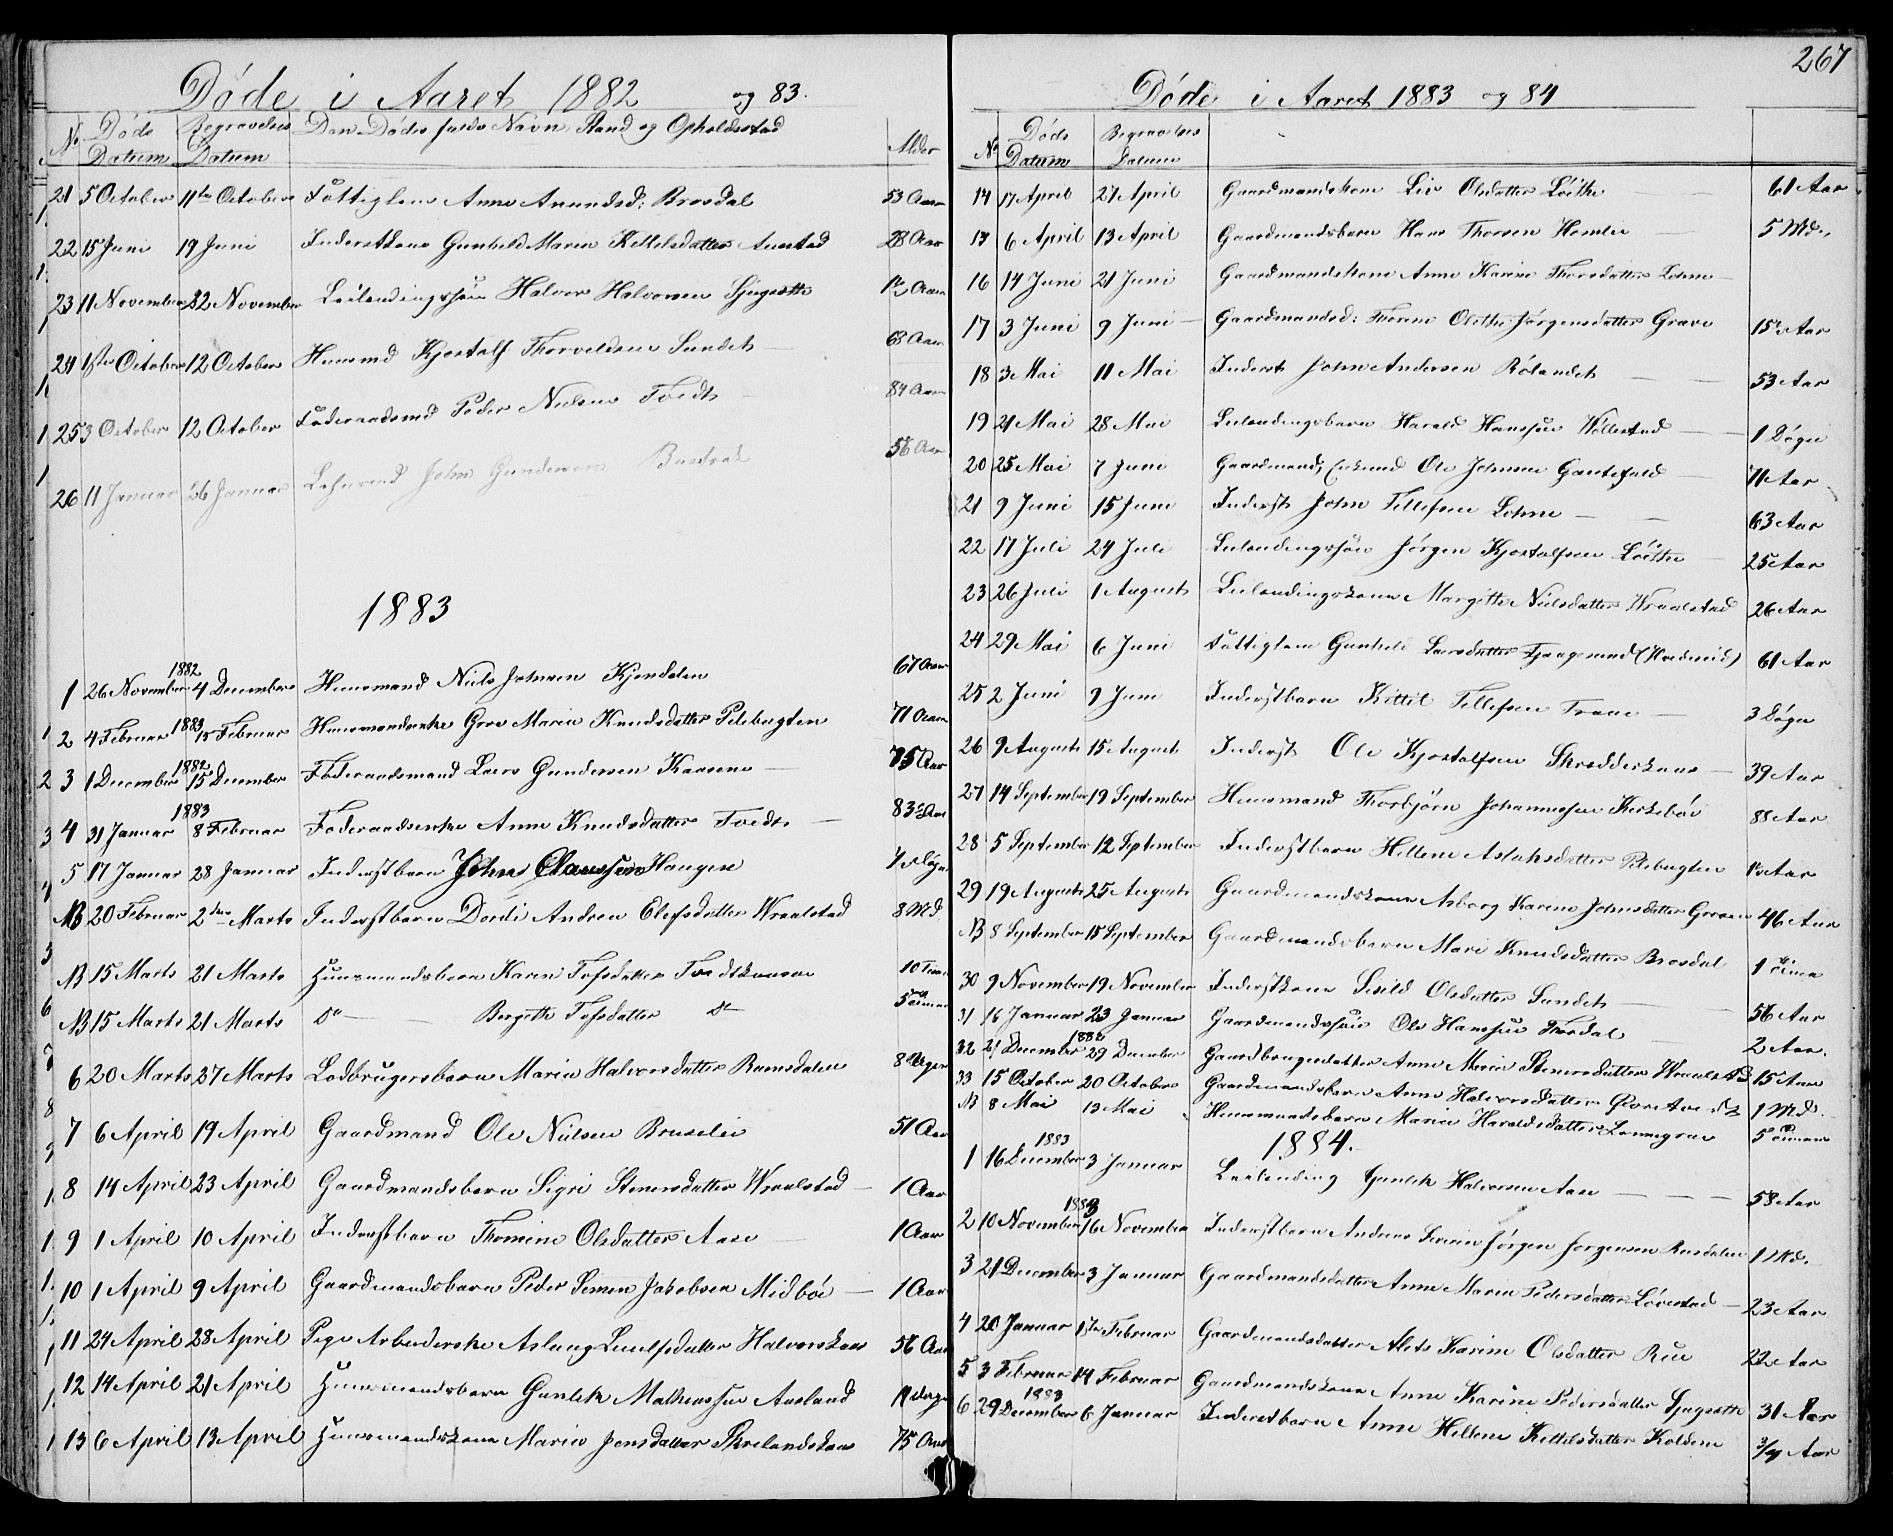 267
Døde i Aaret 1882 og 83.
No Døds Datum Begravelses Datum Den Dødes fulde Navn, Stand og Opholdssted Alder
21 5 October 11te October Fattiglem Anne Anundsd: Brosdal 53 Aar
22 15 Juni 19 Juni Inderstkone Gunhild Maria Kittelsdatter Aunstad 28 Aar
23 11 November 22 November Leilendingssøn Halvor Halvorsen Aar
24 1ste October 12 October Huusmd Kjøstolf Thorvildsen Sundet 68 Aar
25 3 October 12 October Føderaadsmd Peder Nielsen Tvedt 84 Aar
26 11 Januar 26 Januar John Gundersen 56 Aar
1883
1 26 November 1882 4 December Huusmand Niels Johnsen Kjendalen 67 Aar
2 4 Februar 1883 15 Februar Huusmandsenke Gro Maria Knudsdatter Pelebugten 71 Aar
3 1 December 1882 15 December Føderaadsmand Lars Gundersen Kaasene 75 Aar
4 31 Januar 1883 8 Februar Føderaadsenke Anne Knudsdatter Tvedt 83 Aar
5 17 Januar 28 Januar Inderstbarn John Claussen Haugen
NB 20 Februar 2den Marts Inderstbarn Dordi Andrea Olefsdatter Wraalstad 8 Md.
NB 15 Marts 21 Marts Huusmandsbarn Karen Tofsdatter 10
NB 15 Marts 21 Marts do Bergith Tofsdatter do 5
6 20 Marts 27 Marts Lodbrugersbarn Maria Halvorsdatter Ramsdalen 8
7 6 April 19 April Gaardmand Ole Nielsen Bruselie 51 Aar
8 14 April 23 April Gaardmandsbarn Sigri Stenersdatter Wraalstad 1 Aar
9 1 April 10 April Inderstbarn Thomine Olsdatter Aase 1 Aar
10 1 April 9 April Gaardmandsbarn Peder Semen Jakobsen Midbøe 1 Aar
11 24 April 28 April Pige Arbeiderske Aslaug Halvorskaas 56 Aar
12 14 April 21 April Huusmandsbarn Gunlek Mathiassen Ausland
13 6 April 13 April Huusmandskone Maria Jensdatter 75 Aar
Døde i Aaret 1883 og 84
No Døds Datum Begravelses Datum
14 17 April 27 April Gaardmandskone Liv Olsdatter Løite 61 Aar
15 6 April 13 April Gaardmandsbarn Hans Thorsen Hamlie 5 Md.
16 14 Juni 21 Juni Gaardmandskone Anne Karine Thorsdatter Lohne
17 3 Juni 9 Juni Gaardmandsd: Thorine Olethe Jørgensdatter Grave 15 Aar
18 3 Mai 11 Mai Inderst John Andersen Rølandet 53 Aar
19 21 Mai 28 Mai Leilendingsbarn Harald Hanssen Wøllestad 1 Døgn
20 25 Mai 7 Juni Gaardmand, Enkemd Ole Johnsen Gautefald 71 Aar
21 9 Juni 15 Juni Inderst John Tellefsen Lohne 63 Aar
22 17 Juli 24 Juli Leilendingssøn Jørgen Kjøstolfsen Løite 25 Aar
23 26 Juli 1 August Leilendingskone Margithe Nielsdatter Wraalstad 26 Aar
24 29 Mai 6 Juni Fattiglem Gunhild Larsdatter 61 Aar
25 2 Juni 9 Juni Inderstbarn Kittil Tellefsen Trane 3 Døgn
26 9 August 15 August Inderst Ole Kjøstolfsen Skredderkaas 39 Aar
27 14 September 19 September Huusmand Thorbjørn Johannessen Kirkebøe 88 Aar
28 5 September 12 September Inderstbarn Hellene Aslaksdatter Pelebugten Aar
29 19 August 25 August Gaardmandskone Asborg Karine Johnsdatter 46 Aar
NB 8 September 15 September Gaardmandsbarn Mari Knudsdatter Brosdal 1
30 9 November 19 November Inderstkone Sevild Olsdatter Sundet 56 Aar
31 16 Januar 23 Januar Gaardmandssøn Ole Hanssen Tørdal 2 Aar.
32 21 December 1882 29 December Gaardbrugerdatter Anne Maria Stenersdatter Wraalstad 15 Aar
33 15 October 20 October Gaardmandsbarn Anne Halvorsdatter 1 Md.
NB 8 Mai 13 Mai Huusmandsbarn Maria Haraldsdatter 5
1884.
1 16 December 1883 3 Januar Leilending Gunlek Halvorsen Aase 58 Aar
2 10 November 1883 16 November Inderstbarn Andreas Jørgen Jørgensen 1 Md.
3 21 December 3 Januar Gaardmandsdatter Anne Maria Pedersdatter Løvestad 23 Aar
4 20 Januar 1ste Februar Gaardmandsdatter Alet Karine Olsdatter Rue 22 Aar
5 3 Februar 14 Februar Gaardmandskone Anne Karine Pedersdatter 31 Aar
6 29 December 1883 6 Januar Inderstbarn Anne Hellene Kittelsdatter Koldene 3/4 Aar